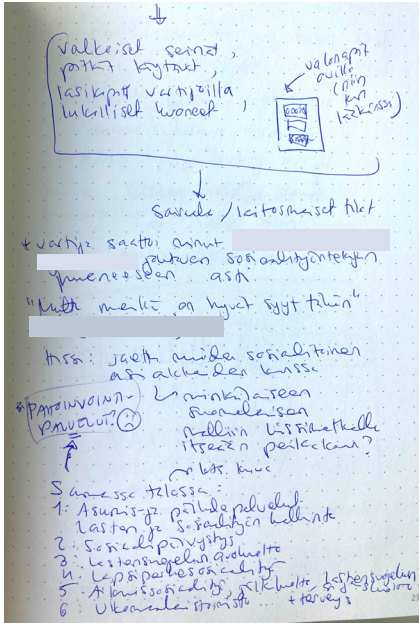 valkoiset seinät,
pitkät käytävät,
lasikopit vartijoilla
lukolliset huoneet,
valonapit
ovilla
(niin
kuin
Sairaala/laitosmaiset tilat
* vartija saattoi minut
sosiaalityöntekijän
huoneeseen asti
"Mutta meillä on hyvät syyt tähän"
Hissi: jaettu muiden sosiaalitoimen
asiakkaiden kanssa
* PAHOINVOINTI-
PALVELUT?
minkälaiseen
suomalaisen
malliin hissimatkalla
itseään peilataan?
kts. kuva
Samassa talossa:
1: Asumis- ja päihdepalvelut
Lasten ja sosiaalityön hallinto
2: Sosiaalipäivystys
3: Lastensuojelun avohuolto
4: Lapsiperhesosiaalityö
5: Aikuissosiaalityö, jälkihuolto, lastensuojelun
6: Ulkomaalaistoimisto + terveys
23